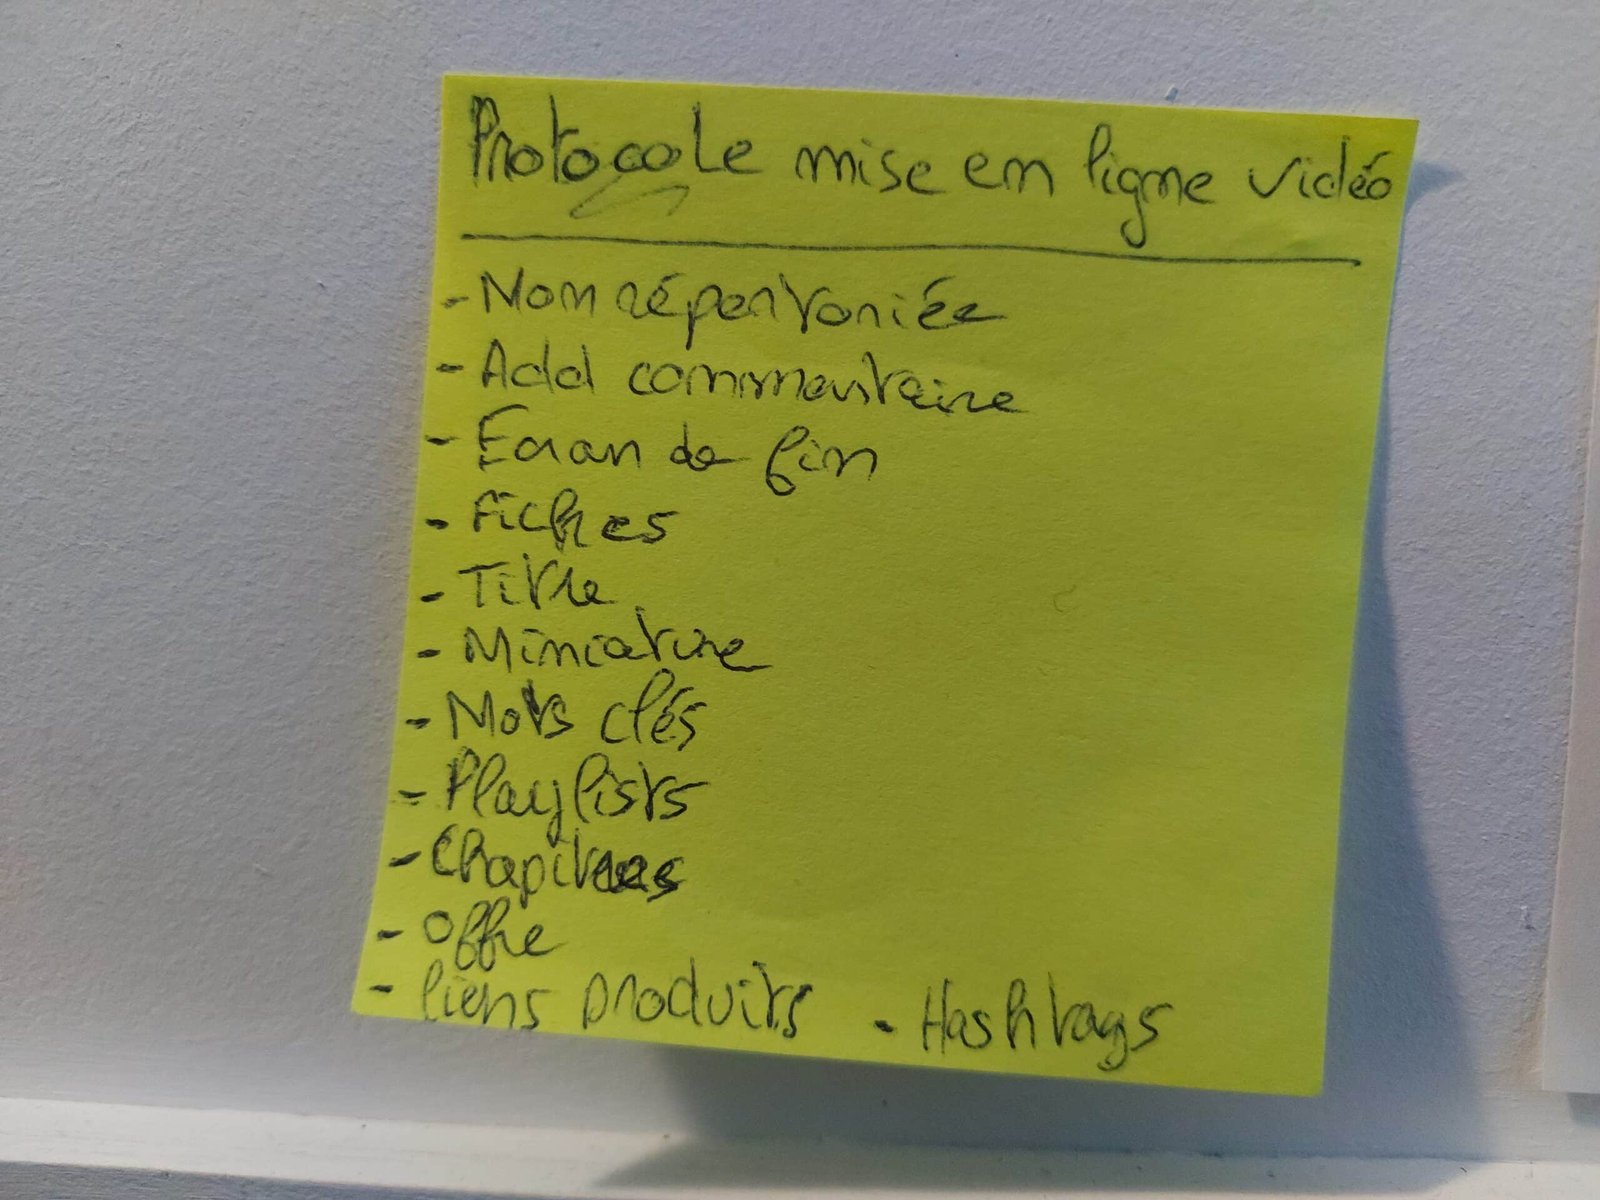 Protocole mise en ligne vidéo
- Nom répertoriée
- Add commentaire
- Ecran de fin
- Fiches
- Titre
- Miniature
- Mots clés
- Playlists
- Chapitres
- Offre
- liens produits - Hashtags